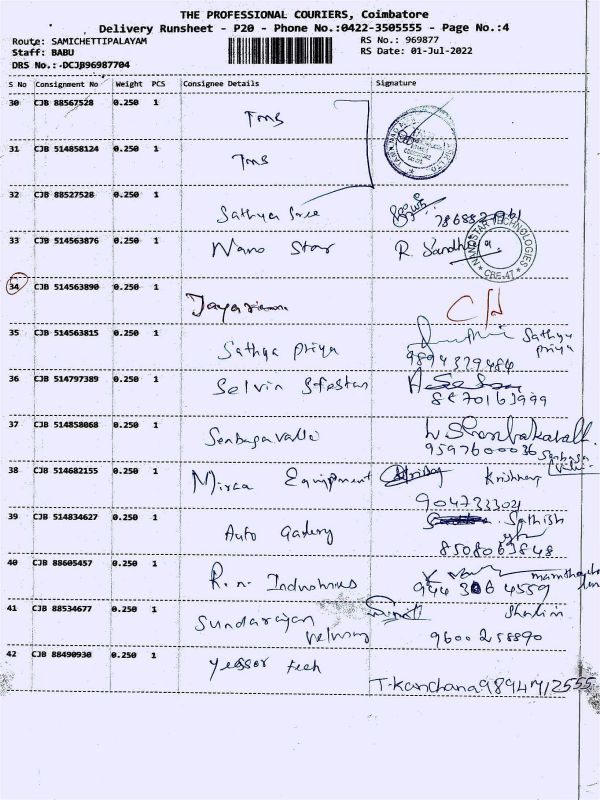 THE PROFESSIONAL COURIERS, Coimbatore
Delivery Runsheet - P20 - Phone No.:0422-3505555 - Page No.:4
Route: SAMICHETTIPALAYAM RS No.: 969877
Staff: BABU RS Date: 01-Jul-2022
DRS No.: DCJB96987704
S No Consignment No Weight PCS Consignee Details Signature
30 CJB 88567528 0.250 1 Tms
31 CJB 514858124 0.250 1 Tms
32 CJB 88527528 0.250 1 Sathya Sree
33 CJB 514563876 0.250 1 Nano Star R. Sandhiya
NANO STAR TECHNOLOGIES
CBE-47
34 CJB 514563890 0.250 1
35 CJB 514563815 0.250 1 Sathya priya Sathya priya
9894329484
36 CJB 514797389 0.250 1 Selvin
37 CJB 514858068 0.250 1 Senbagavalli
9597600036
38 CJB 514682155 0.250 1 Equipment
39 CJB 514834627 0.250 1 Auto Sathish
8508063848
40 CJB 88605457 0.250 1 R. n. Industries
944 3064559
41 CJB 88534677 0.250 1 Sundarajan
9600258890
42 CJB 88490930 0.250 1 tech
T. Kanchana 9894712555